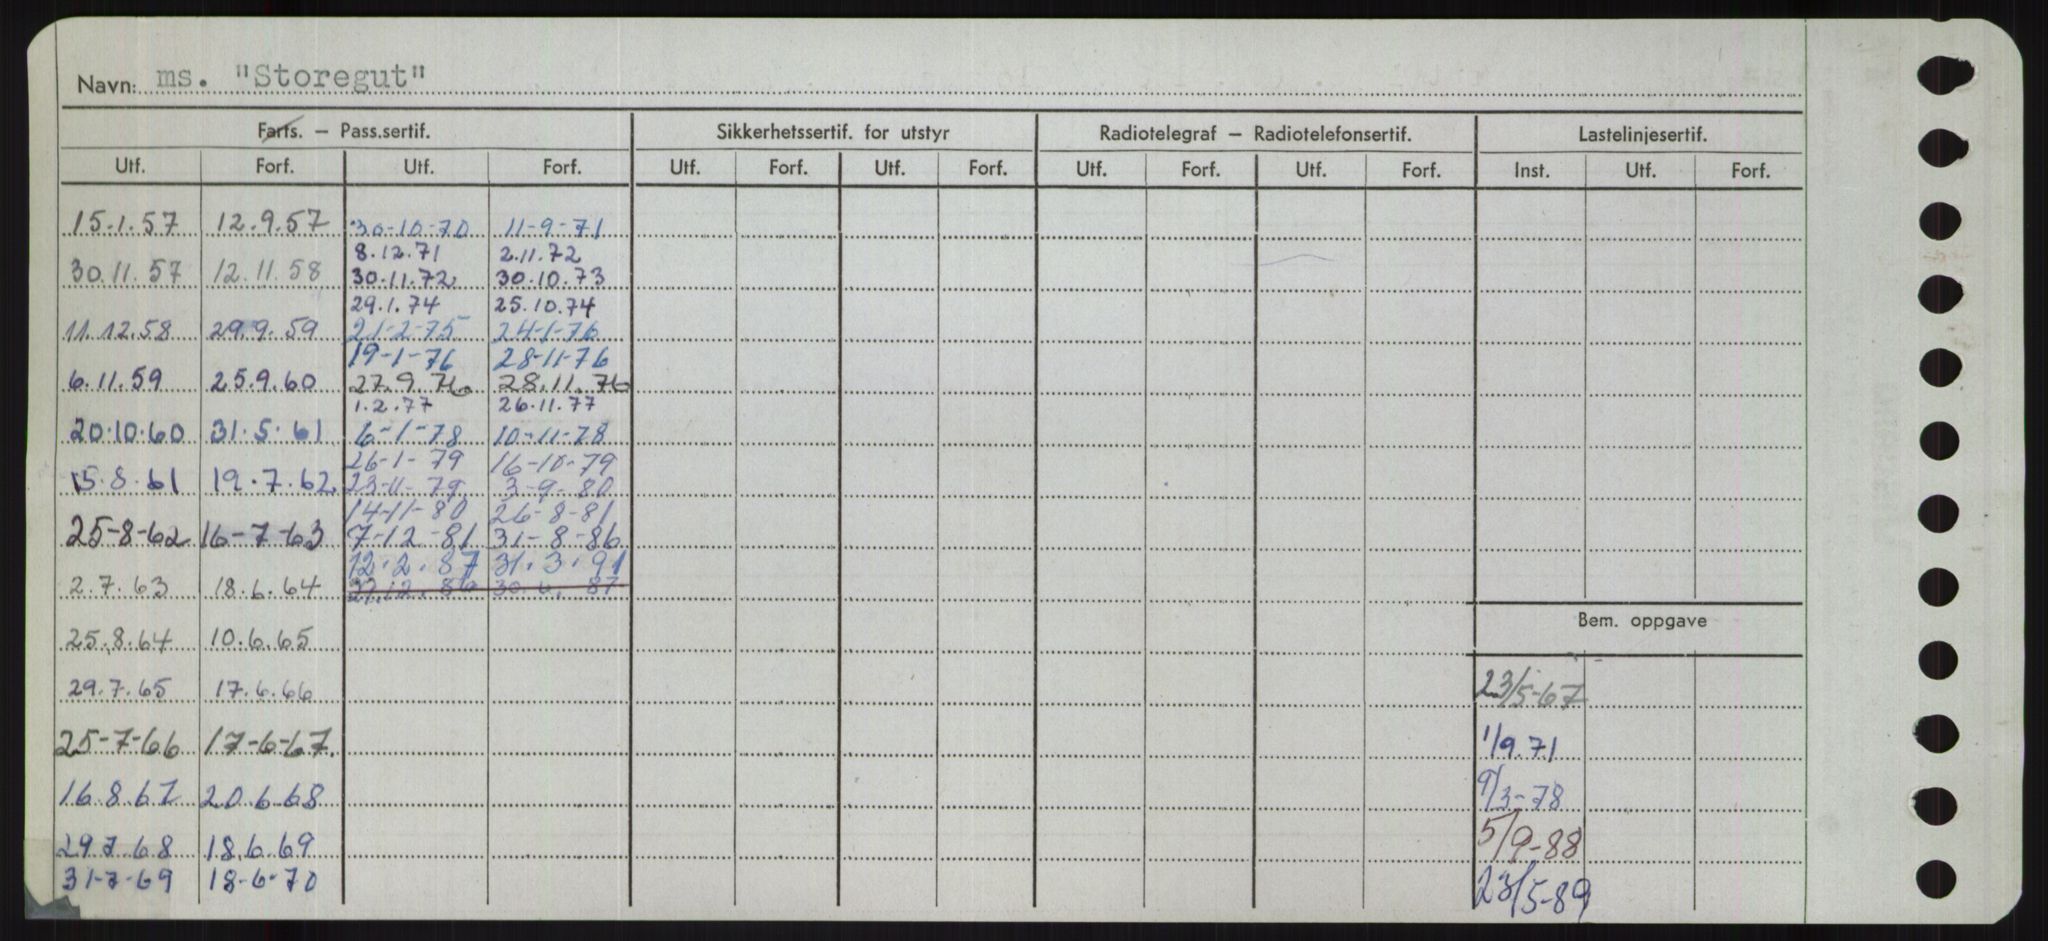 Navn: ms. "Storegut"
Farts. – Pass.sertif. Sikkerhetssertif. for utstyr Radiotelegraf – Radiotelefonsertif. Lastelinjesertif.
Utf. Forf. Utf. Forf. Utf. Forf. Utf. Forf. Utf. Forf. Utf. Forf. Inst. Utf. Forf.
15.1.57 12.9.57 30-10-70 11-9-71
8.12.71 2.11.72
30.11.57 12.11.58 30.11.72 30.10.73
29.1.74 25.10.74
11.12.58 29.9.59 21-2-75 24-1-76
19-1-76 28-11-76
6.11.59 25.9.60 27.9.76 28.11.76
1.2.77 26.11.77
20.10.60 31.5.61 6-1-78 10-11-78
26-1-79 16-10-79
15.8.61 19.7.62. 23-11-79 3-9-80
14-11-80 26-8-81
25-8-62 16-7-63 7-12-81 31-8-86
12.2.87 31.3.91
2.7.63 18.6.64 27.12.86 30.6.87
Bem. oppgave
25.8.64 10.6.65
29.7.65 17.6.66 23/5-67
25-7-66 17-6-67. 1/9.71
16.8.67 20.6.68 9/3-78
29.7.68 18.6.69 5/9-88
31-7-69 18-6-70 23/5-89